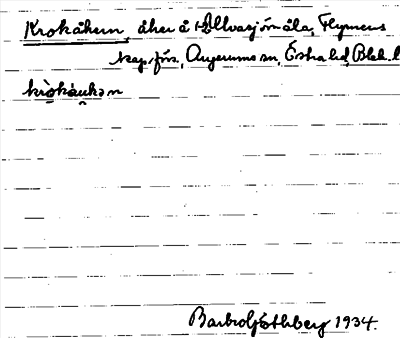 Krokåkern, åker å Allvasjömåla, Flymens
kap.förs., Augerums sn, Östra hd, Blek. l
kròkåukən
Barbro 1934.